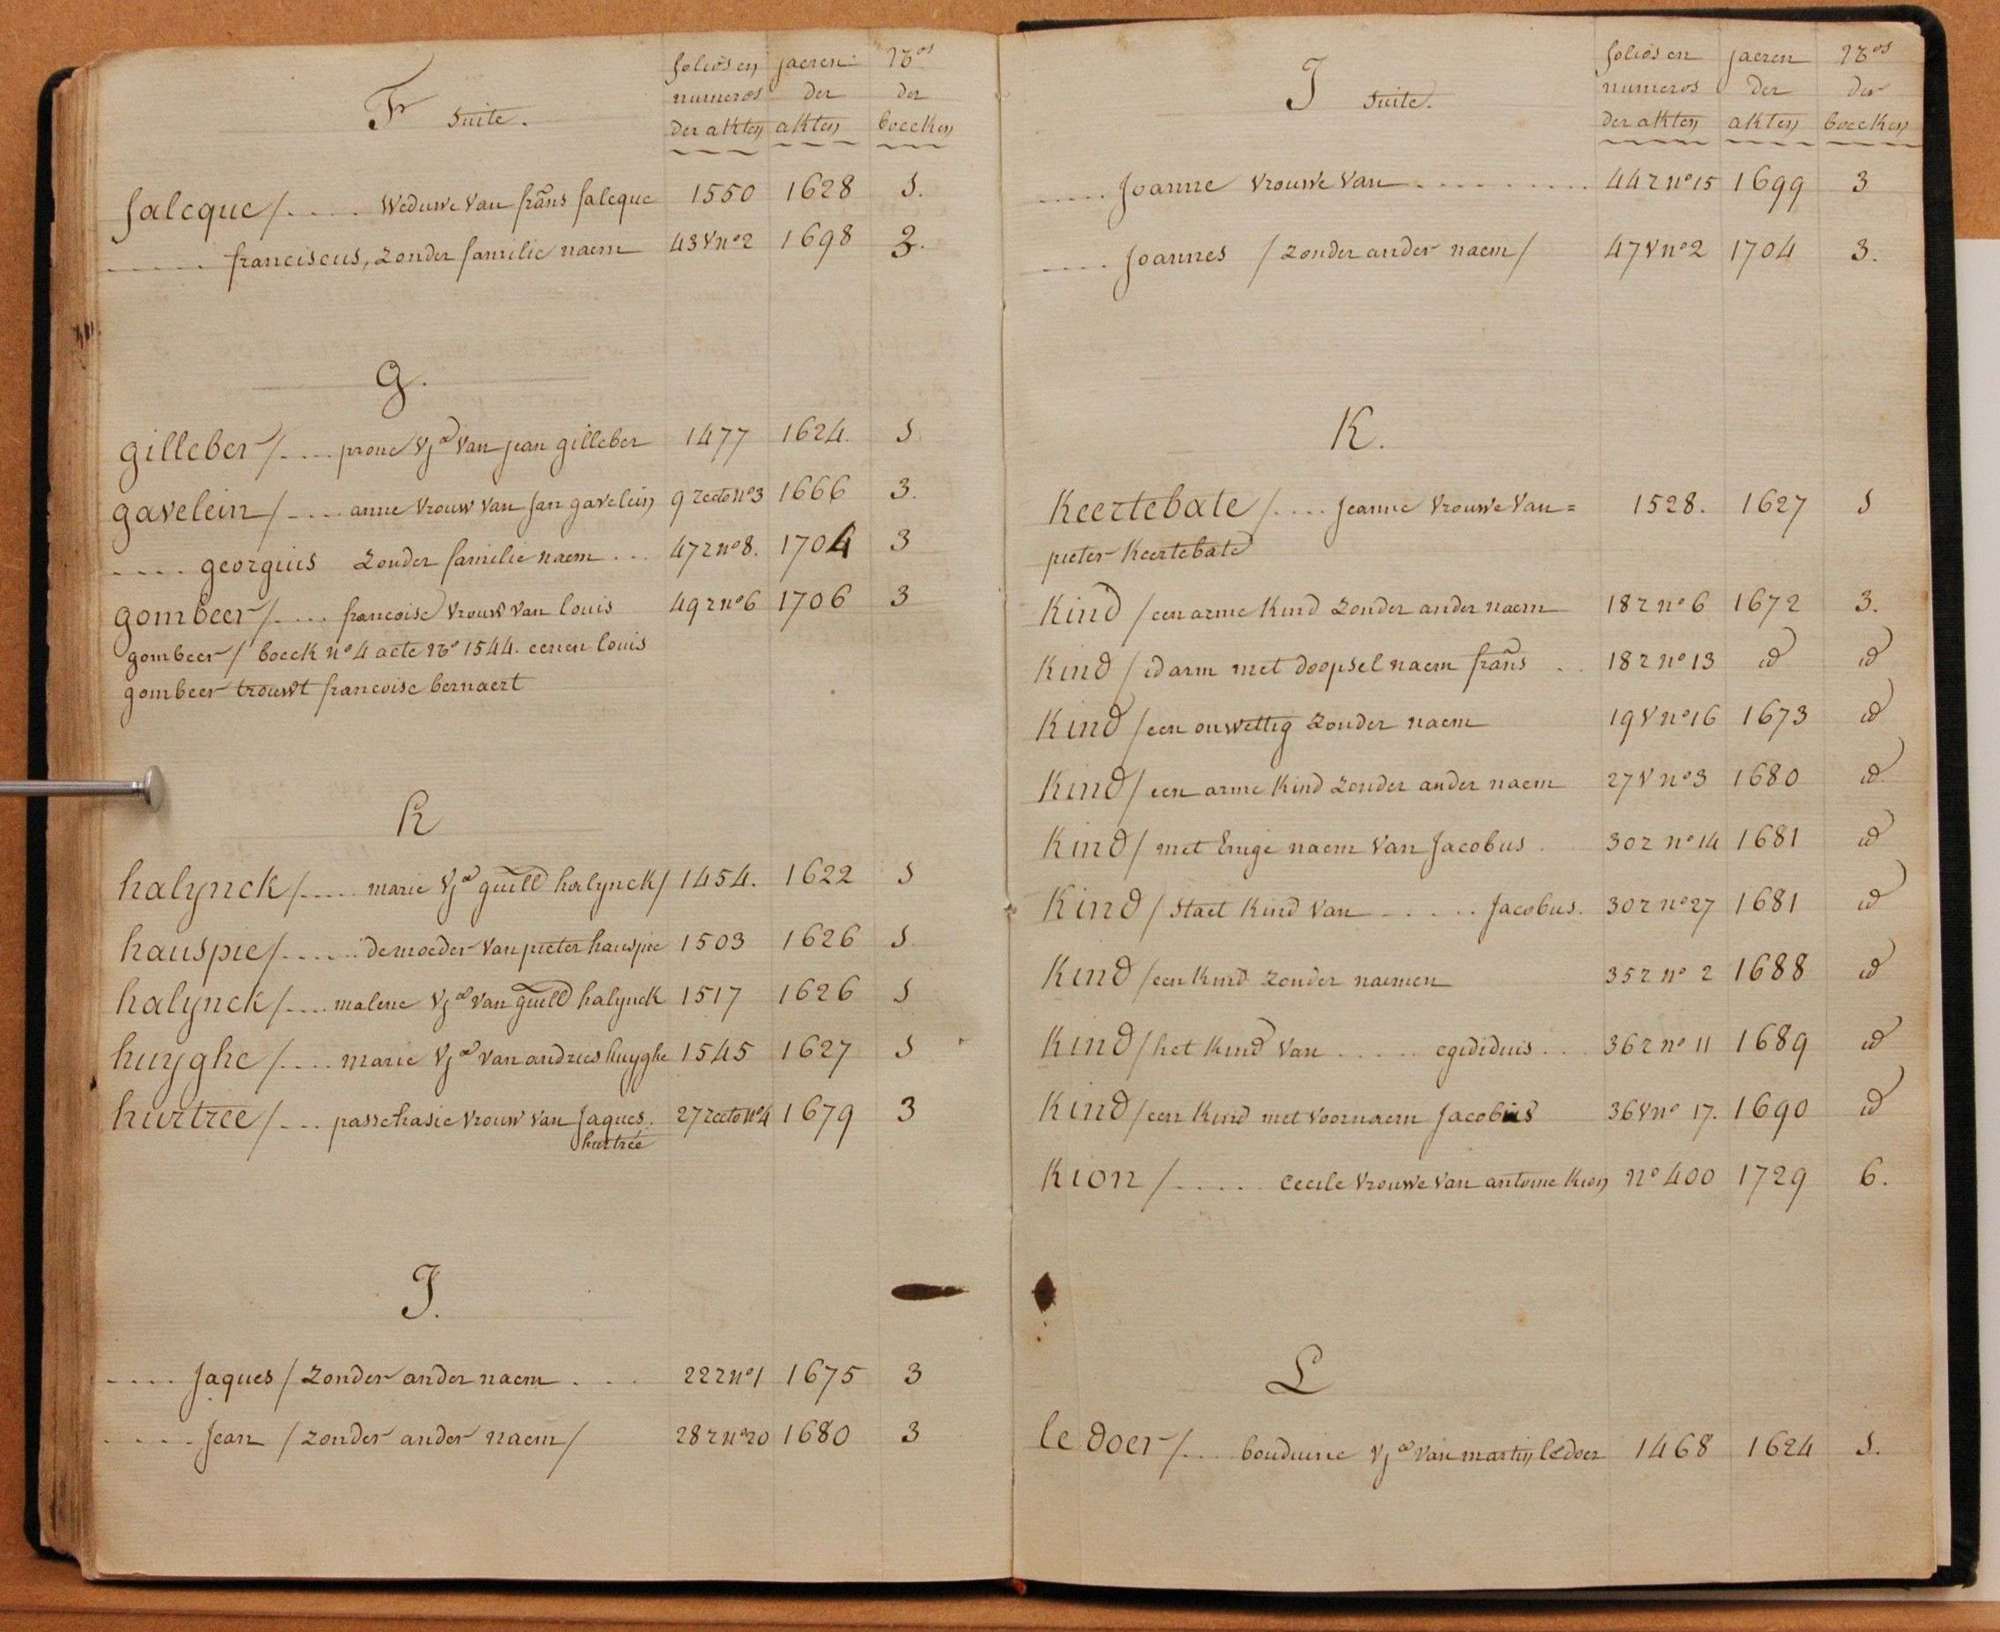 F suite.
folios en numeros der akten
jaeren der akten
Nos der boecken
falcque / .... Weduwe van frans falcque 1550 1628 1.
..... franciscus, zonder familie naem 43 v no 2 1698 3.
g.
gilleber / .... prone vje van jean gilleber 1477 1624. 1
gavelein / .... anne vrouw van jan gavelein 9 recto no 3 1666 3.
.... georgius zonder familie naem ... 47 r no 8. 1704 3
gombeer / .... francoise vrouw van louis 49 r no 6 1706 3
gombeer / boeck no 4 acte No 1544. eenen louis
gombeer trouwt francoise bernaert
h
halynck / .... marie vje guill halynck / 1454. 1622 1
hauspie / ..... de moeder van pieter hauspie 1503 1626 1
halynck / .... malene vje van guill halynck 1517 1626 1
huyghe / .... marie vje van andries huyghe 1545 1627 1
hurtree / ... passchasie vrouw van jaques. 27 recto no 4 1679 3
hurtrée
J.
.... jaques / zonder ander naem ... 22 r no 1 1675 3
.... jean / zonder ander naem / 28 r no 20 1680 3
J suite.
folios en numeros der akten
jaeren der akten
Nos der boecken
..... joanne vrouwe van .......... 44 r no 15 1699 3
.... joannes / zonder ander naem / 47 v no 2 1704 3.
K.
Keertebate / .... jeanne vrouwe van = 1528. 1627 1
pieter Keertebate
Kind / een arme kind zonder ander naem 18 r no 6 1672 3.
Kind / id arm met doopsel naem frans .. 18 r no 13 id id
Kind / een onwettig zonder naem 19 v no 16 1673 id
Kind / een arme kind zonder ander naem 27 v no 3 1680 id
Kind / met Enige naem van jacobus . 30 r no 14 1681 id
Kind / staet kind van ..... jacobus. 30 r no 27 1681 id
Kind / een kind zonder naemen 35 r no 2 1688 id
Kind / het kind van ..... egididuis ... 36 r no 11 1689 id
Kind / een kind met voornaem jacobus 36 v no 17. 1690 id
Kion / ..... cecile vrouwe van antoine kion no 400 1729 6.
L
le doer / .... bouduine vje van martin le doer 1468 1624 1.